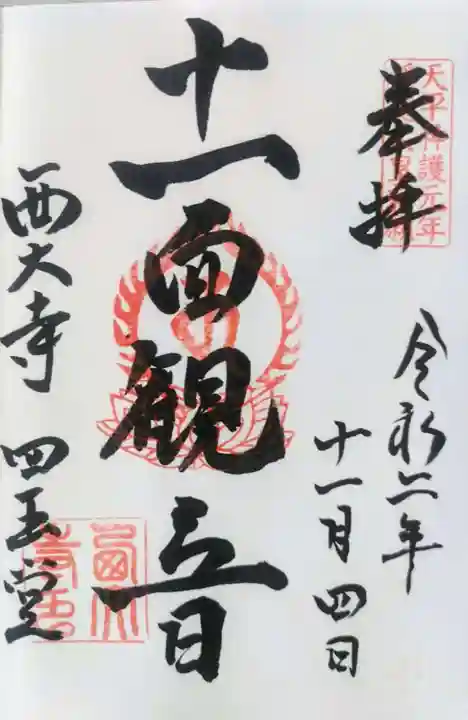 奉拝
天平神護元年
令和二年
十一月四日
十一面観音
西大寺 四王堂